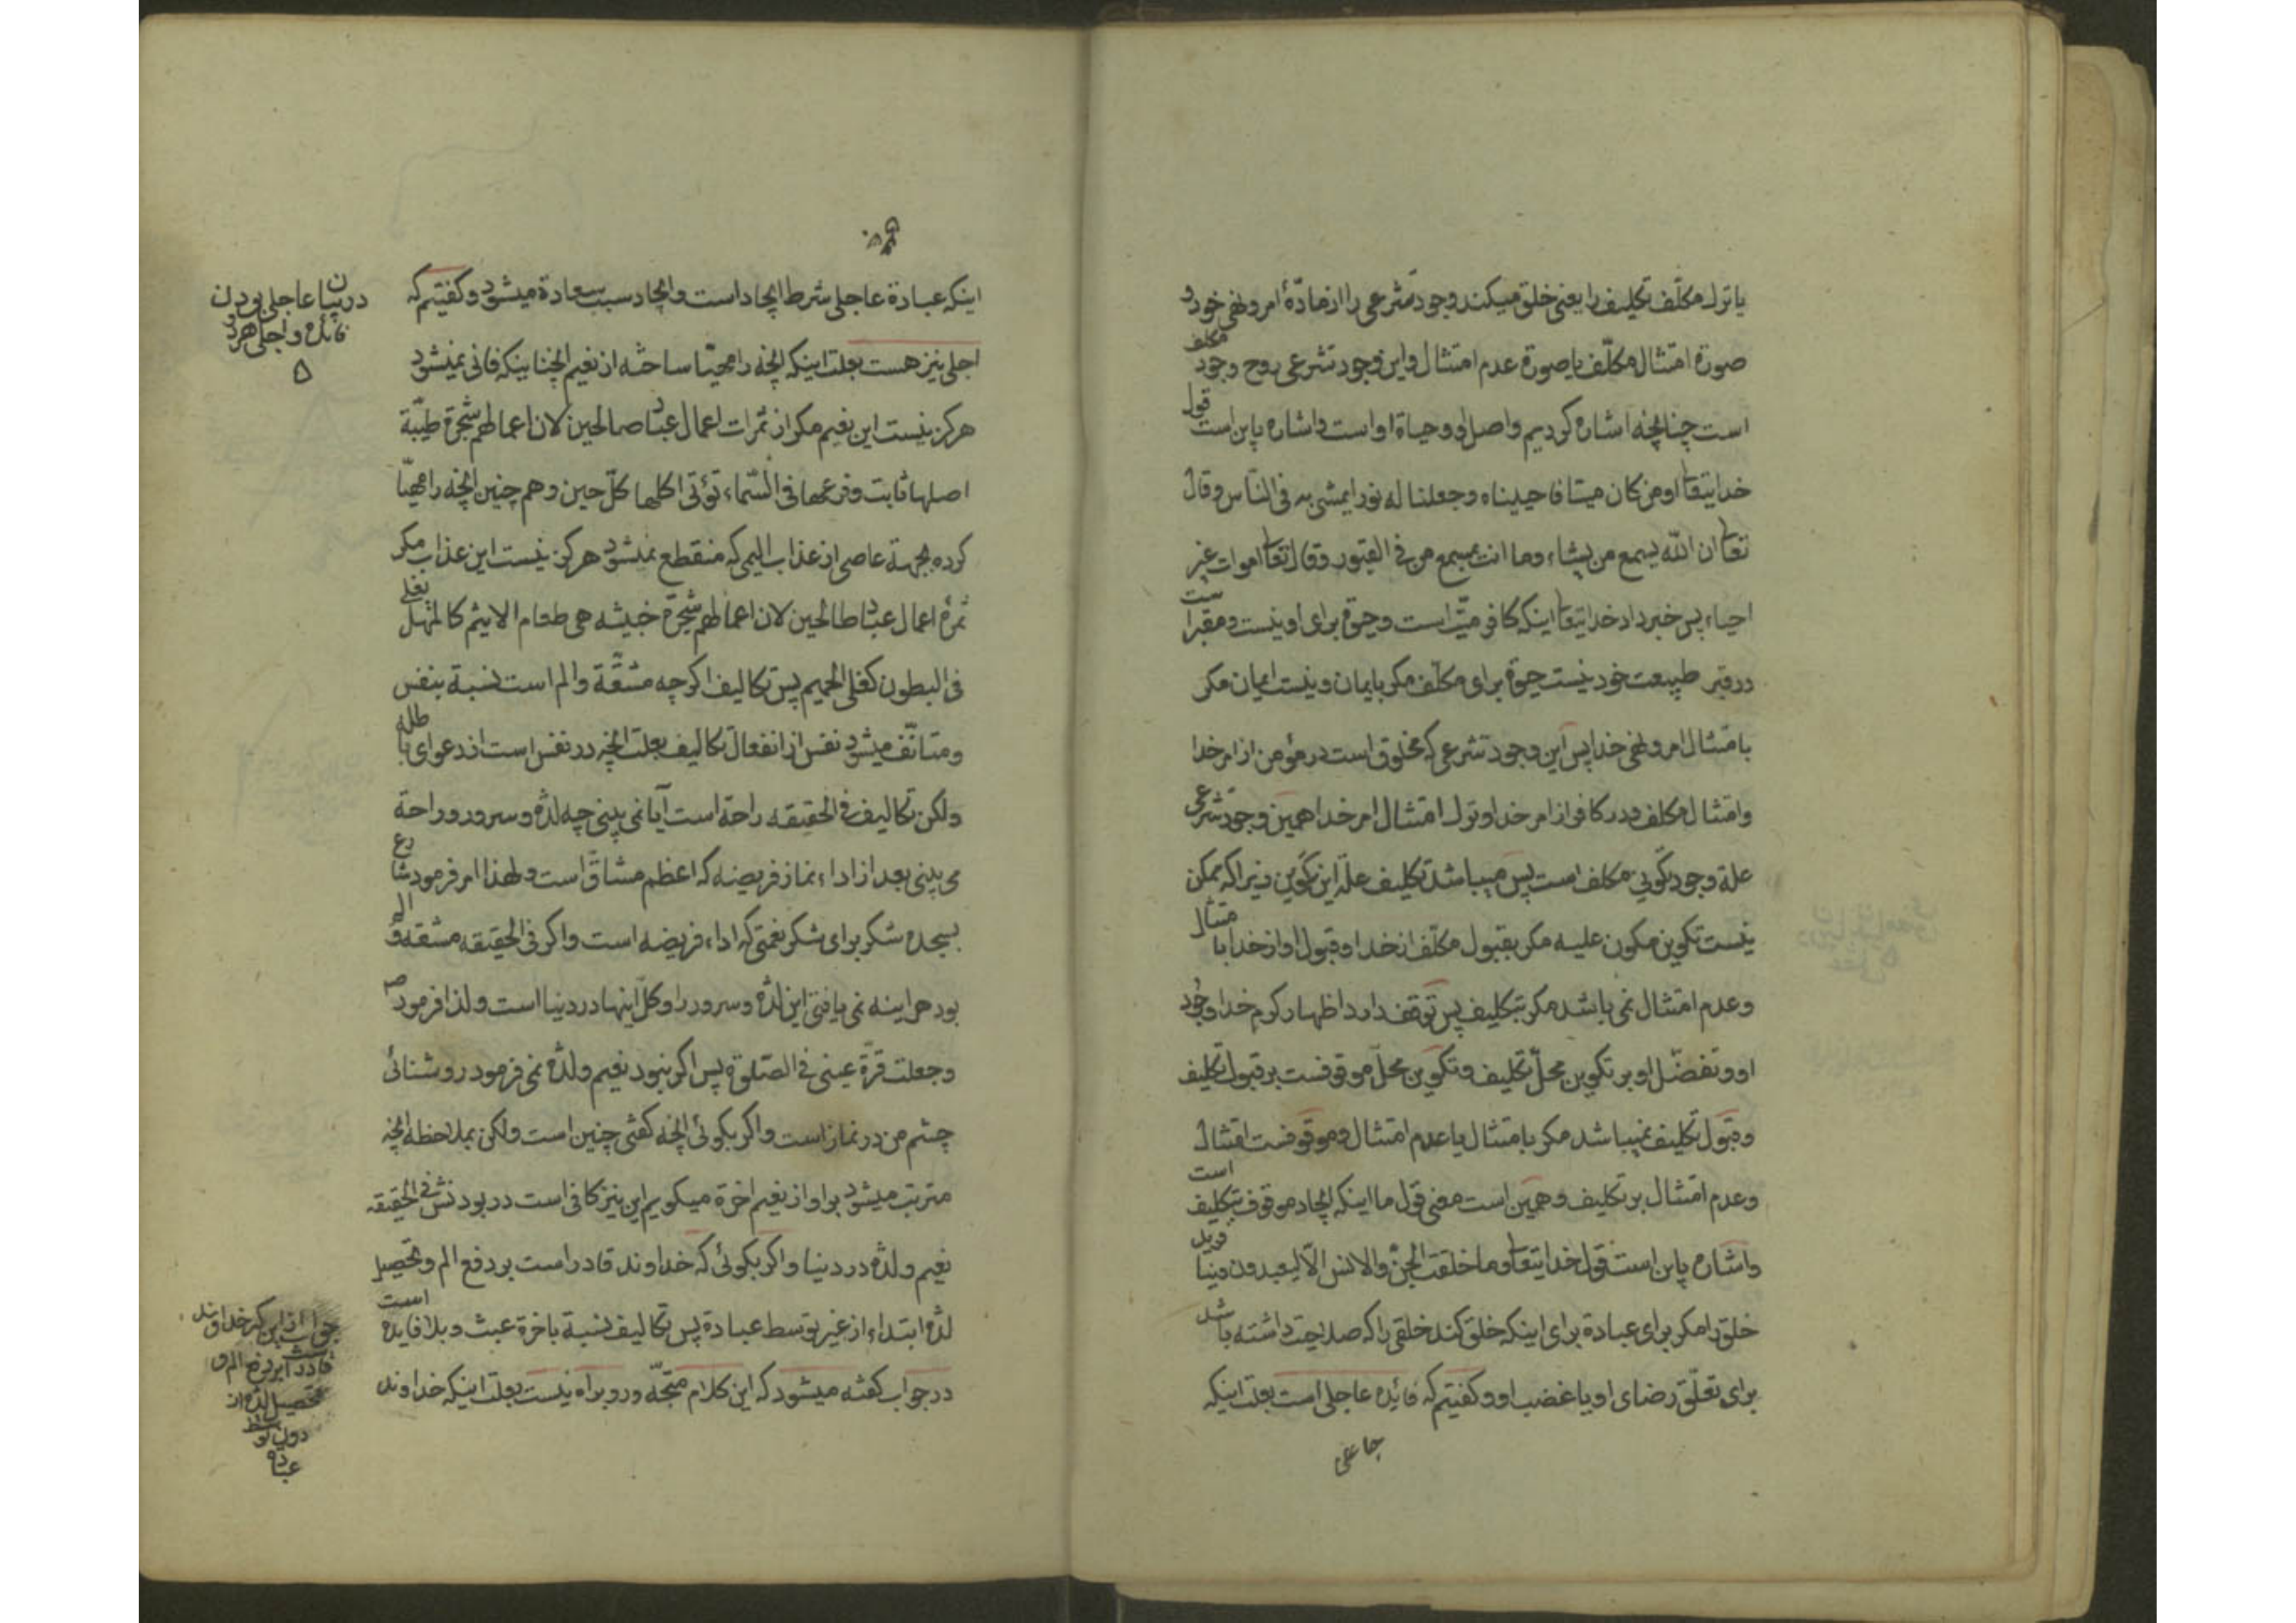 یا ترك مكلّف تكلیف را یعنی خلق میكند وجود تشرعی را از مادّهٔ امر و نهی خود و
صورة امتثال مكلّف یا صورة عدم امتثال و این وجود تشرعی روح وجود مكلف
است چنانچه اشاره كردیم و اصل او و حیاة او است و اشاره باین است قول
خدایتعالی اومن كان میتا فاحییناه و جعلنا له نورا یمشی به فی النّاس و قال
تعالی ان اللّه یسمع من یشاء و ما انت بمسمع من فی القبور و قال تعالی اموات غیر
احیاء پس خبر داد خدایتعالی اینكه كافر میّت است و حیوة برای او نیست و مقبر است
در قبر طبیعت خود نیست حیوة برای مكلّف مكر بایمان و نیست ایمان مكر
بامتثال امر و نهی خدا پس این وجود تشرعی كه مخلوق است در مؤمن از امر خدا
و امتثال مكلف و در كافر از امر خدا و ترك امتثال امر خدا همین وجود تشرعی
علة وجود تكوینی مكلف است پس میباشد تكلیف علّة این تكوین زیرا كه ممكن
نیست تكوین مكون علیه مكر بقبول مكلّف از خدا و قبول او از خدا بامتثال
و عدم امتثال نمی باشد مكر بتكلیف پس توقف دارد اظهار كرم خدا و جُود
او و تفضّل او بر تكوین محلّ تكلیف و تكوین محلّ موقوفست بر قبول تكلیف
و قبول تكلیف نمیباشد مكر بامتثال یا عدم امتثال و موقوفست امتثال
و عدم امتثال بر تكلیف و همین است معنی قول ما اینكه ایجاد موقوف بتكلیف است
و اشاره باین است قول خدایتعالی و ما خلقت الجنّ و الانس الّا لیعبدون
خلق را مكر برای عبادة برای اینكه خلق كند خلقی را كه صلاحیت داشته باشد
برای تعلّق رضای او یا غضب او و كفتیم كه فائده عاجلی است بعلت اینكه
اینكه عبادة عاجلی شرط ایجاد است و ایجاد سبب سعادة میشود و كفتیم كه
اجلی نیز هست بعلت اینكه انچه را مهیّا ساخته از نعیم انچنانیكه فانی نمیشود
هركز نیست این نعیم مكر از ثمرات اعمال عباد صالحین لان اعمالهم شجرة طیّبة
اصلها ثابت و فرعها فی السّماء تؤتی اكلها كلّ حین و هم چنین انچه را مهیّا
كرده بجهة عاصی از عذاب الیمی كه منقطع نمیشود هركز نیست این عذاب مكر
ثمره اعمال عباد طالحین لان اعمالهم شجرة خبیثه هی طعام الاثیم كالمهل یغلی
فی البطون كغلی الحمیم پس تكالیف اكرچه مشقّة و الم است نسبة بنفس
و متانّف میشود نفس از انفعال تكالیف بعلت انچه در نفس است از دعوای باطله
ولكن تكالیف فی الحقیقه راحة است آیا نمی بینی چه لذّه و سرور و راحة
می بینی بعد از اداء نماز فریضه كه اعظم مشاقّ است و لهذا امر فرمود شارع
بسجده شكر برای شكر نعمتی كه اداء فریضه است و اكر فی الحقیقه مشقه و الم
بود هراینه نمی یافتی این لذّه و سرور را و كلّ اینها در دنیا است و لذا فرمود ص
و جعلت قرّة عینی فی الصّلوة پس اكر نبود نعیم و لذّه نمی فرمود روشنائی
چشم من در نماز است و اكر بكوئی انچه كفتی چنین است ولكن بملاحظه انچه
مترتب میشود بر او از نعیم اخرة میكویم این نیز كافی است در بودنش فی الحقیقه
نعیم و لذّه در دنیا و اكر بكوئی كه خداوند قادر است بر دفع الم و تحصیل
لذه ابتداء از غیر توسط عبادة پس تكالیف نسبة باخرة عبث و بلا فایده است
در جواب كفته میشود كه این كلام متجّه و رو براه نیست بعلت اینكه خداوند
در بیان عاجلی بودن
فائده و اجلی هر دو
جواب از این كه خداوند
قادر است بر دفع الم و
تحصیل لذّه از
دون توسط
عباده